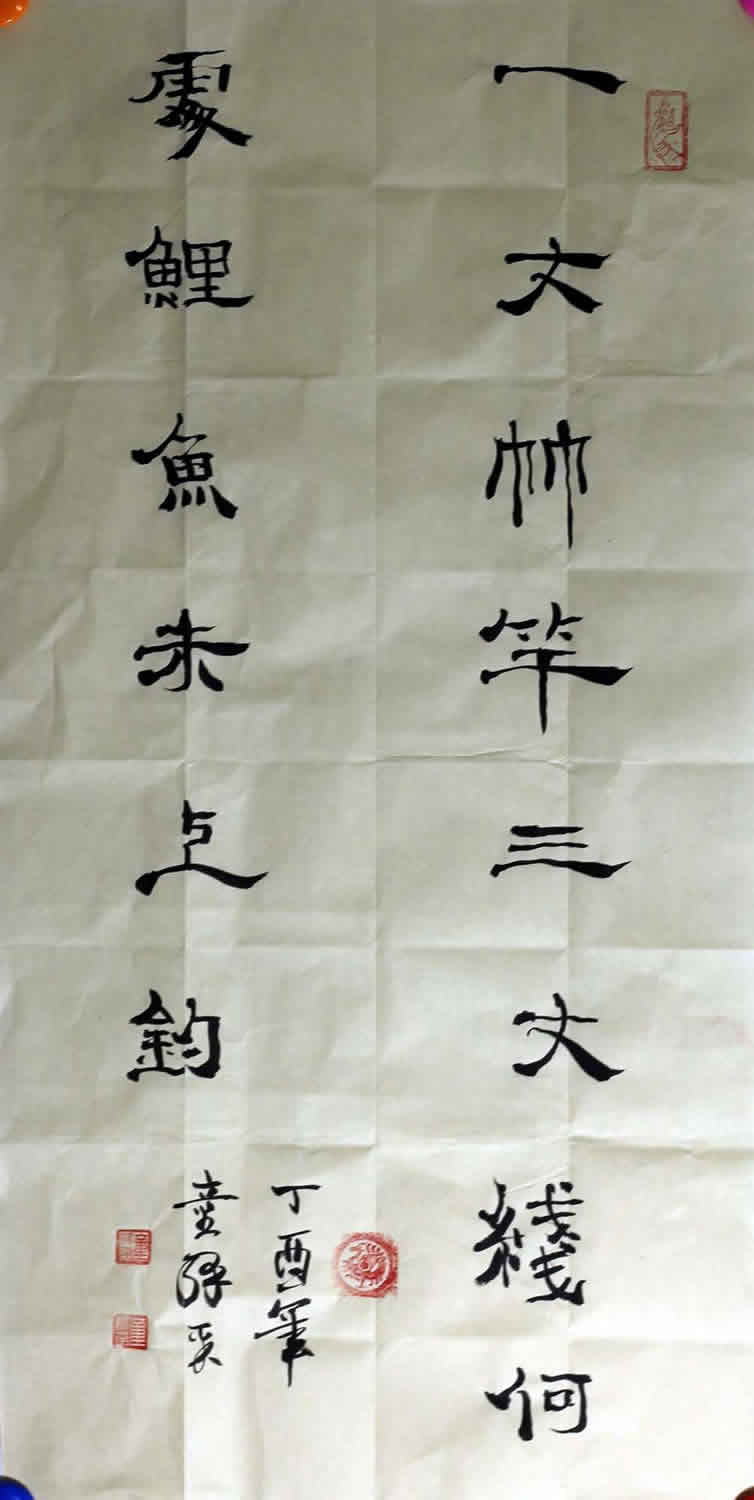 一丈竹竿三丈綫何
處鯉魚未上鈎
丁酉年
童